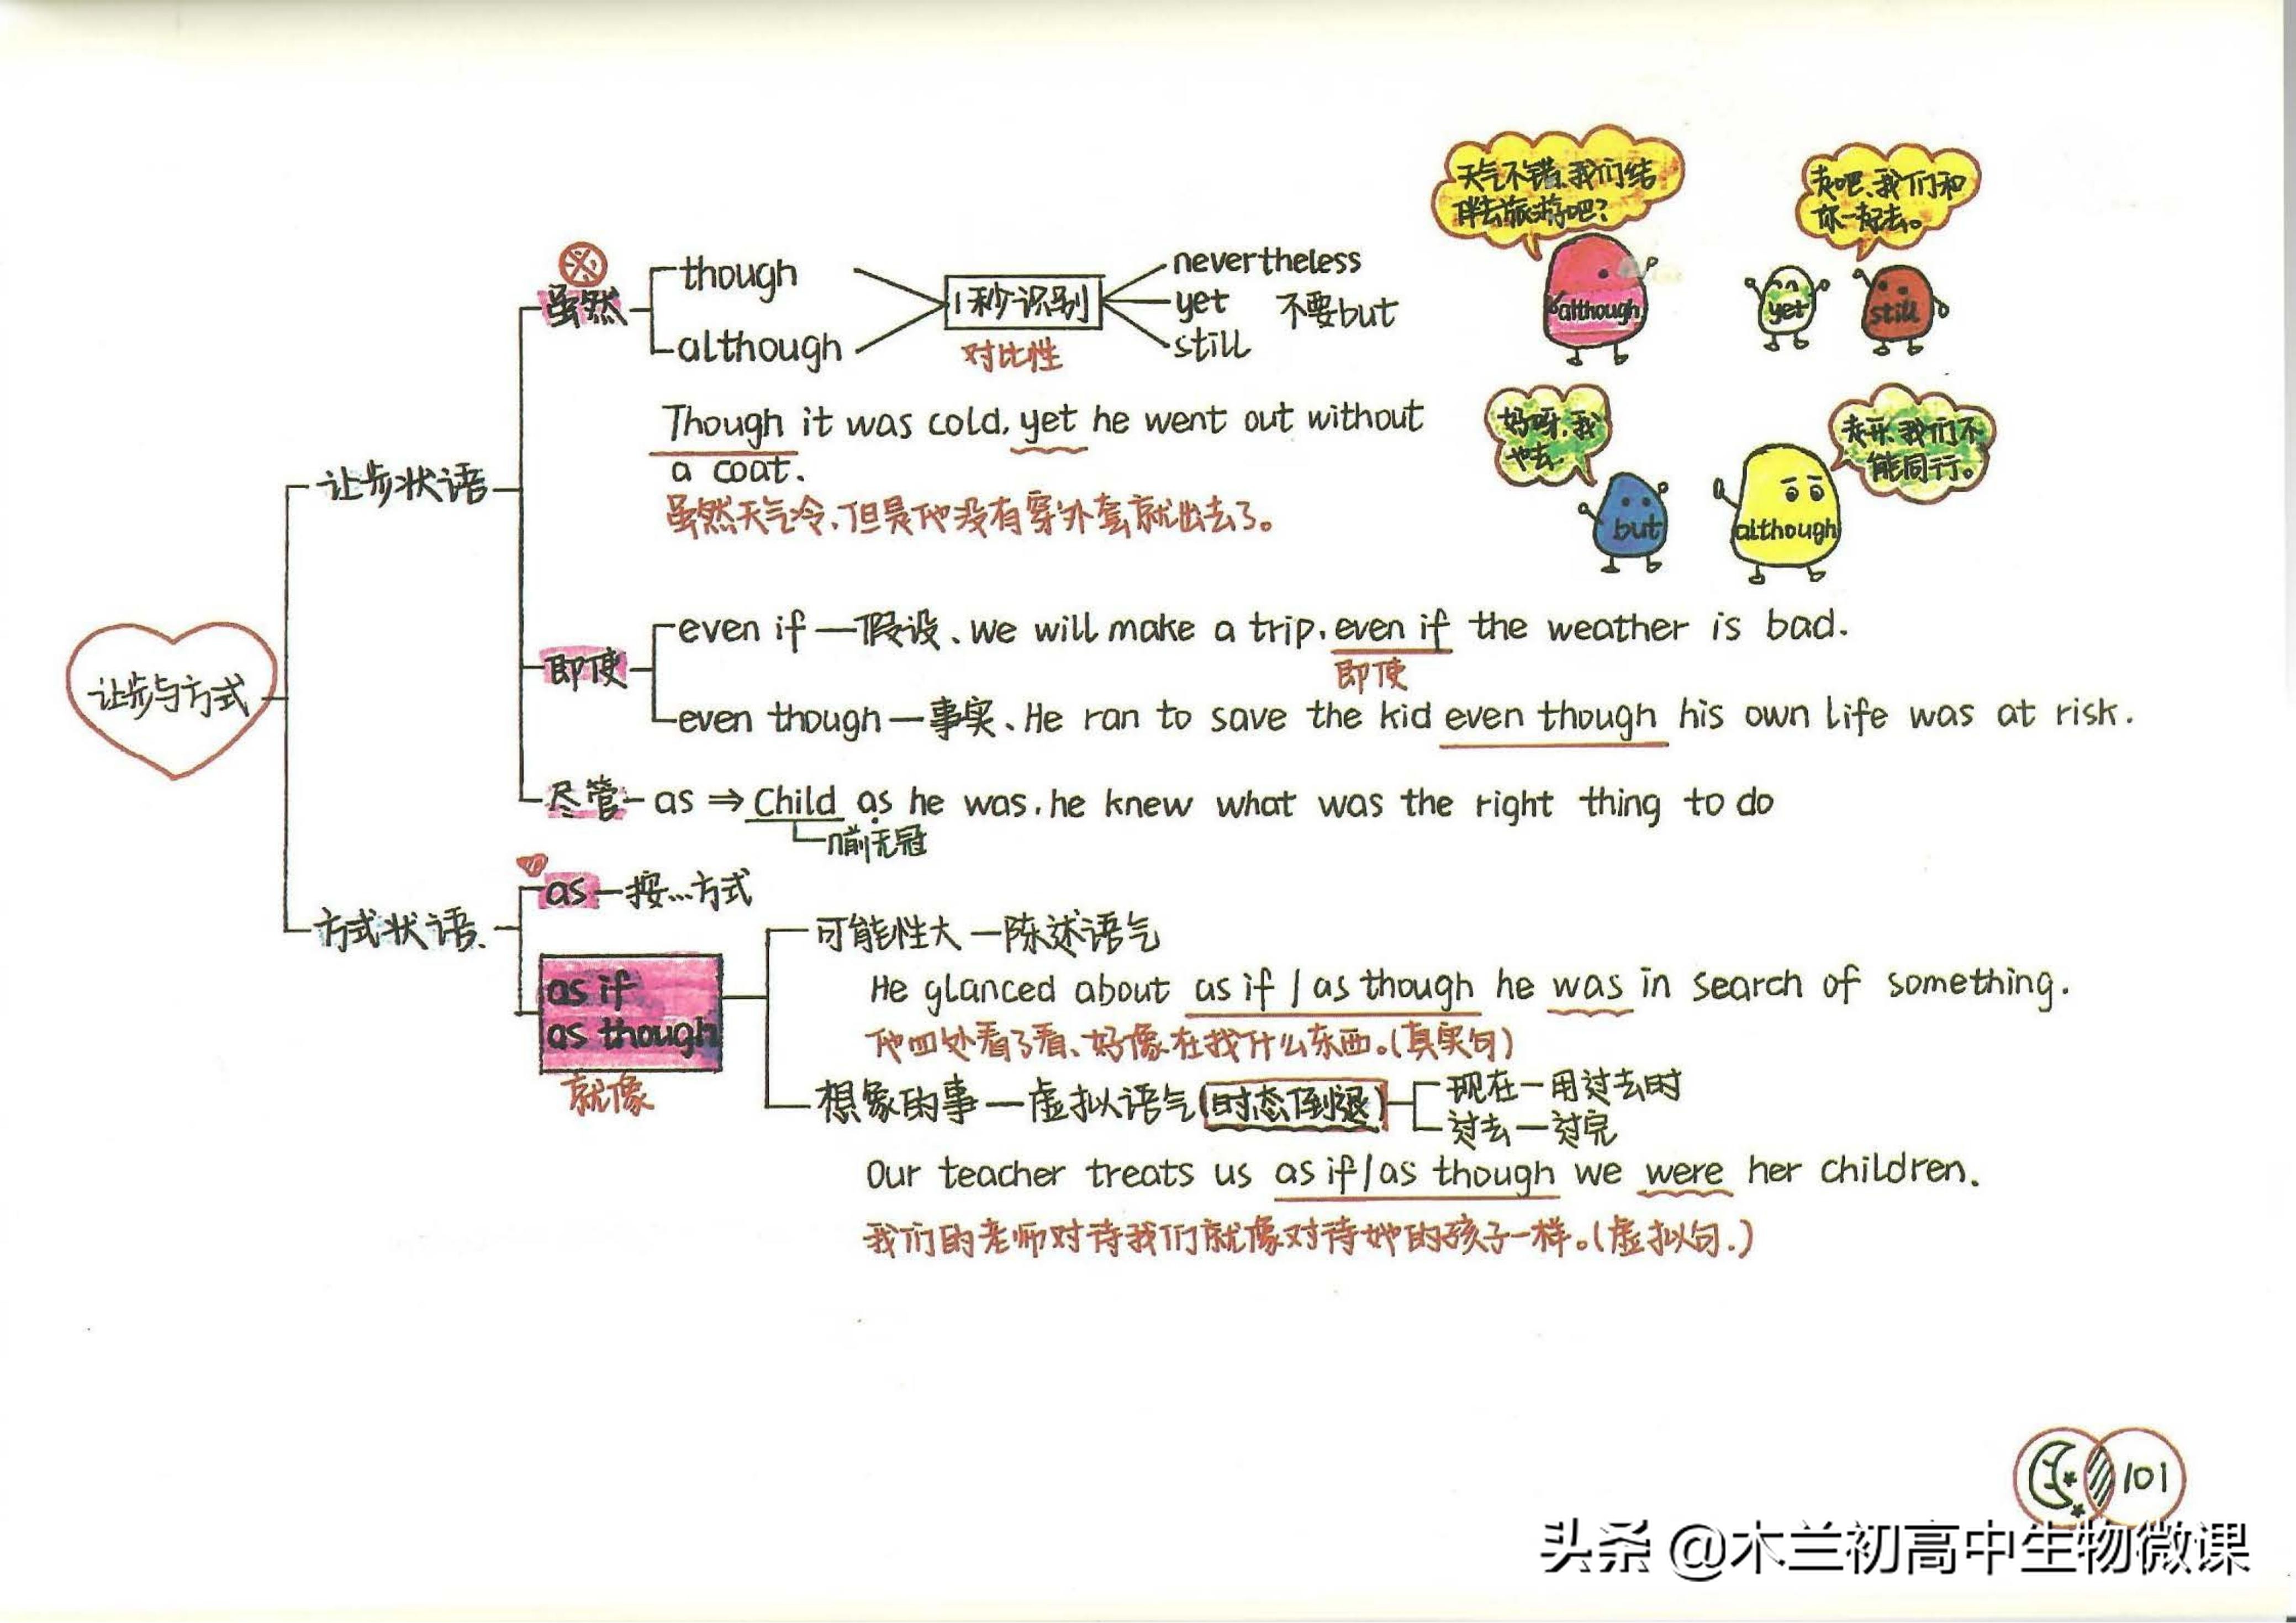 天气不错、我们结
伴去旅游吧？
去吧、我们和
你一起去。
though
nevertheless
虽然
1秒识别
yet
不要but
although
still
对比性
although
yet
still
Though it was cold, yet he went out without
a coat.
虽然天气冷、但是他没有穿外套就出去了。
妈呀、我
也去
走开、我们不
能同行。
but
although
让步状语
even if—假设、we will make a trip, even if the weather is bad.
即使
即使
even though—事实、He ran to save the kid even though his own life was at risk.
让步与方式
尽管—as⇒Child as he was, he knew what was the right thing to do
n前无冠
as—按…方式
方式状语、
可能性大—陈述语气
as if
as though
就像
He glanced about as if / as though he was in search of something.
他四处看了看、好像在找什么东西。(真实句)
想象的事—虚拟语气(时态倒退)
现在—用过去时
过去—过完
Our teacher treats us as if/as though we were her children.
我们的老师对待我们就像对待她的孩子一样。(虚拟句.)
101
头条 @木兰初高中生物微课